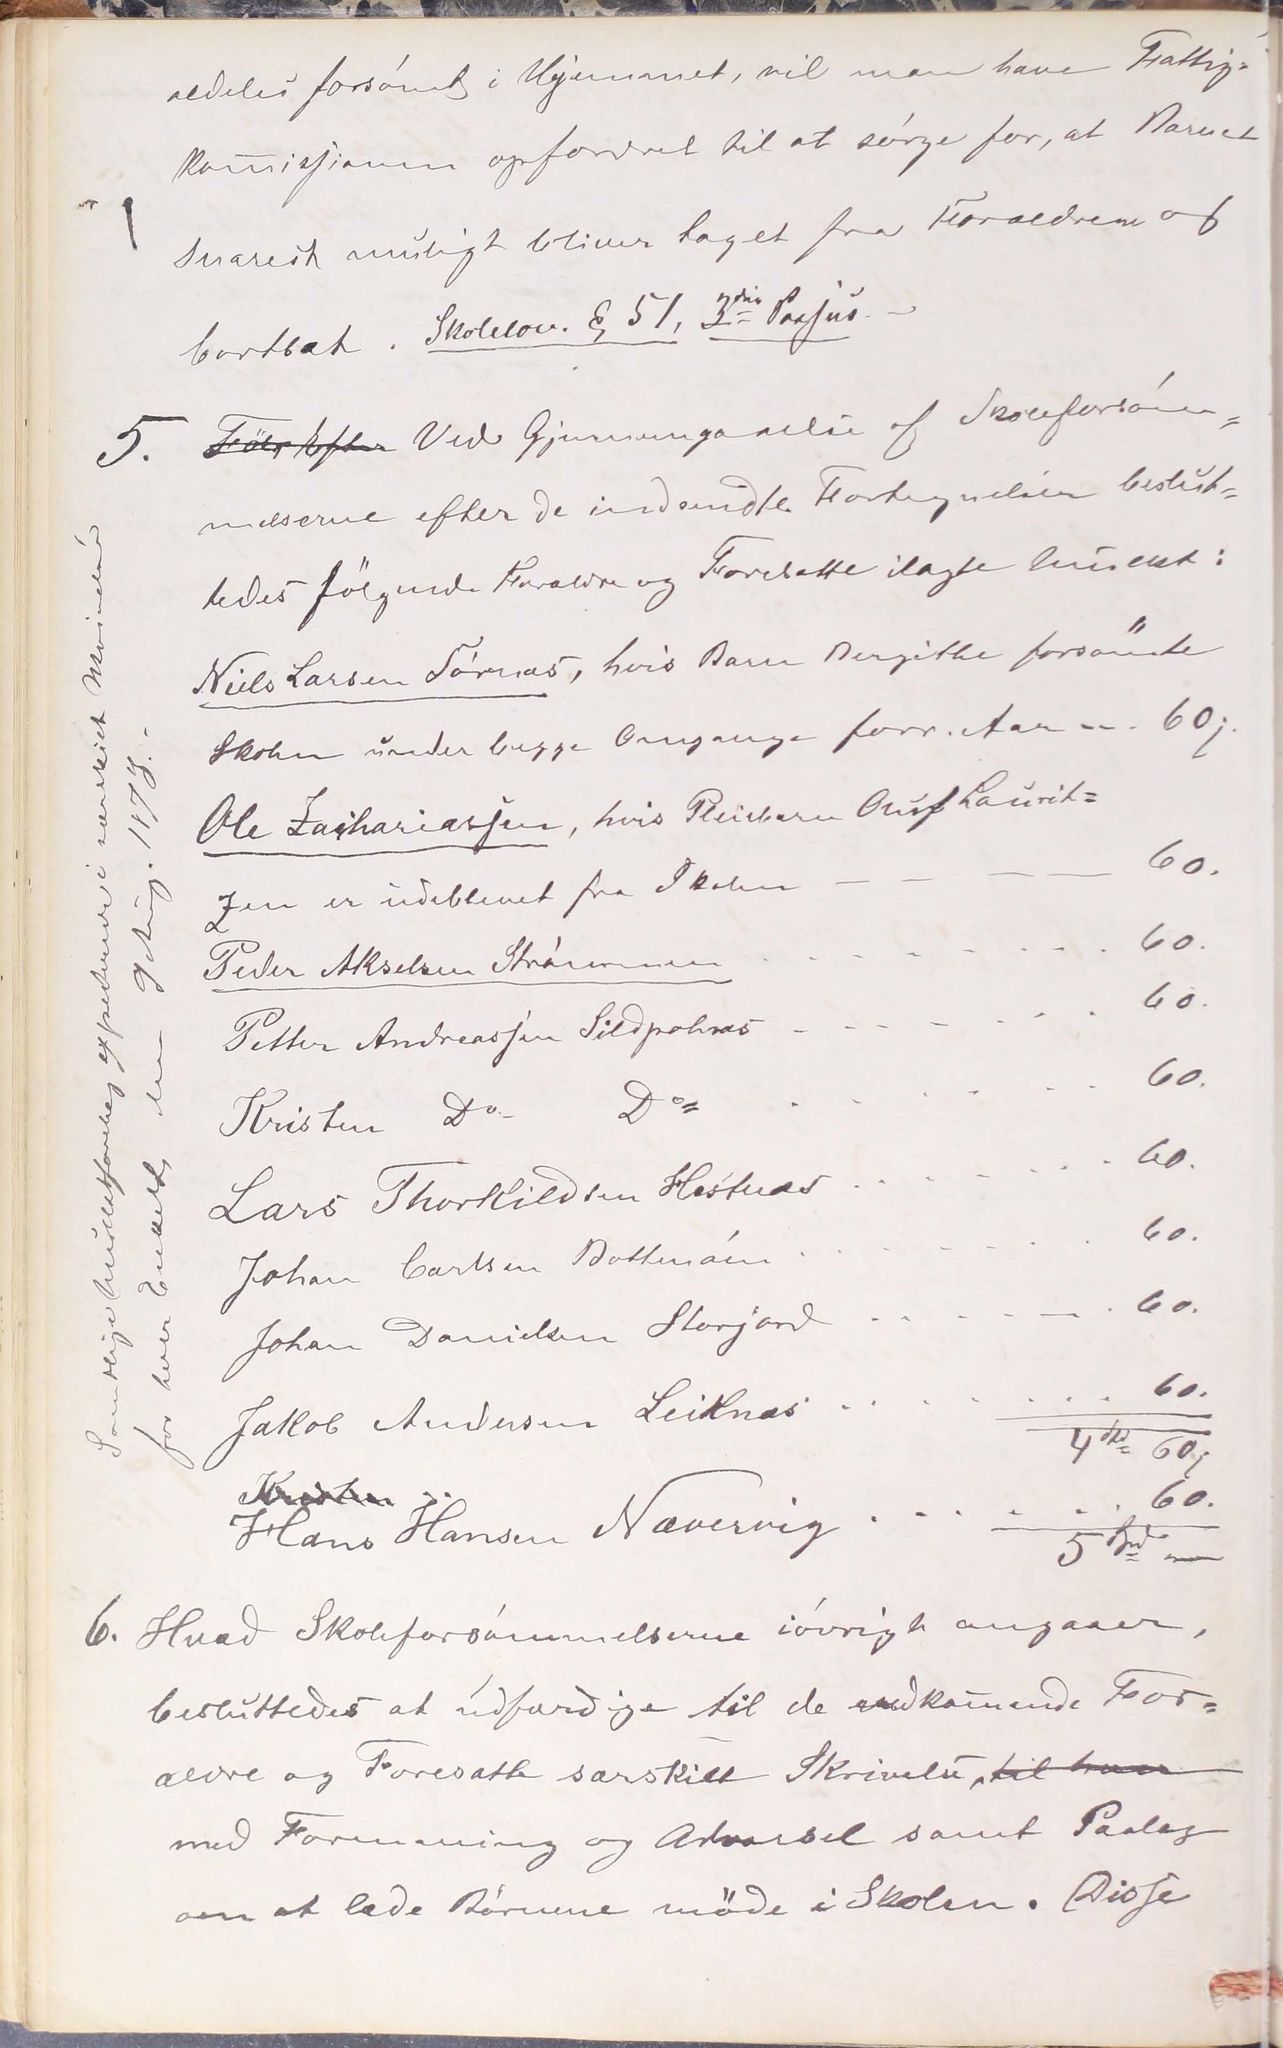 aldeles forsömt i Hjemmet, vil man have Fattig-
kommissionen opfordret til at sörge for, at Barnet
snarest muligt bliver taget fra Forældrene og
bortsat. Skolelov. § 51, 3die Passus. -
5. Ved Gjennemgaaelse af Skoleforsöm=
melserne efter de indsendte Fortegnelser beslut=
tedes fölgende Forældre og Foresatte ilagte Mulkt:
Niels Larsen Törnæs, hvis Barn Bergithe forsömte
Skolen under begge Omgange forr. Aar - - 60 ß.
Ole Zachariassen, hvis Pleiebarn Oluf Laurit=
zen er udeblevet fra Skolen - - - - 60.
Peder Akselsen Strömmen . . . . . . 60.
Petter Andreassen Sildpolnæs - - - - - 60.
Kristen Do- Do= . . . . . 60.
Lars Thorkildsen Hestnæs . . . . . . 60.
Johan Carlsen Bottenöen . . . . . . 60.
Johan Danielsen Storjord . . . . . . 60.
Jakob Andersen Leiknæs . . . . . . 60.
4 60 ß
Kristen
Hans Hansen Nævervig . . . . . . 60.
5 Spd -
6. Hvad Skoleforsömmelserne iövrigt angaaer,
besluttedes at udfærdige til de vedkommende For=
ældre og Foresatte særskilt Skrivelse, til hver
med Formaning og Advarsel samt Paalæg
om at lade Börnene möde i Skolen. Disse
Samtlige Mulktforelæg expederede i særskilt Skrivelse
for hver Enkelt, den 9 Aug. 1873. -